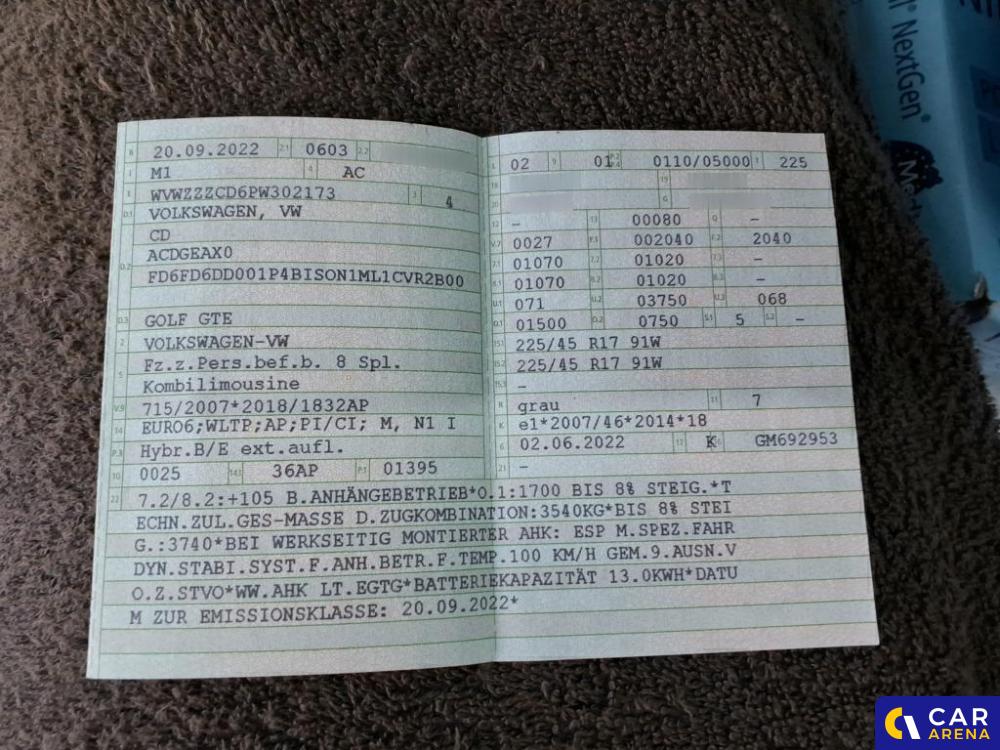 NextGen
B 20.09.2022 2.1 0603 2.2
J M1 4 AC
E WVWZZZCD6PW302173 3 4
D.1 VOLKSWAGEN, VW
CD
D.2 ACDGEAX0
FD6FD6DD001P4BISON1ML1CVR2B00
D.3 GOLF GTE
2 VOLKSWAGEN-VW
5 Fz.z.Pers.bef.b. 8 Spl.
Kombilimousine
V.9 715/2007*2018/1832AP
14 EURO6;WLTP;AP;PI/CI; M, N1 I
P.3 Hybr.B/E ext.aufl.
10 0025 14.1 36AP P.1 01395
L 02 9 01 P.2 P.4 0110/05000 T 225
18 19
20 G
12 – 13 00080 Q –
V.7 0027 F.1 002040 F.2 2040
7.1 01070 7.2 01020 7.3 –
8.1 01070 8.2 01020 8.3 –
U.1 071 U.2 03750 U.3 068
O.1 01500 O.2 0750 S.1 5 S.2 –
15.1 225/45 R17 91W
15.2 225/45 R17 91W
15.3 –
R grau 11 7
K e1*2007/46*2014*18
6 02.06.2022 17 K 16 GM692953
21 –
22 7.2/8.2:+105 B.ANHÄNGEBETRIEB*O.1:1700 BIS 8% STEIG.*T
ECHN.ZUL.GES-MASSE D.ZUGKOMBINATION:3540KG*BIS 8% STEI
G.:3740*BEI WERKSEITIG MONTIERTER AHK: ESP M.SPEZ.FAHR
DYN.STABI.SYST.F.ANH.BETR.F.TEMP.100 KM/H GEM.9.AUSN.V
O.Z.STVO*WW.AHK LT.EGTG*BATTERIEKAPAZITÄT 13.0KWH*DATU
M ZUR EMISSIONSKLASSE: 20.09.2022*
CAR
ARENA